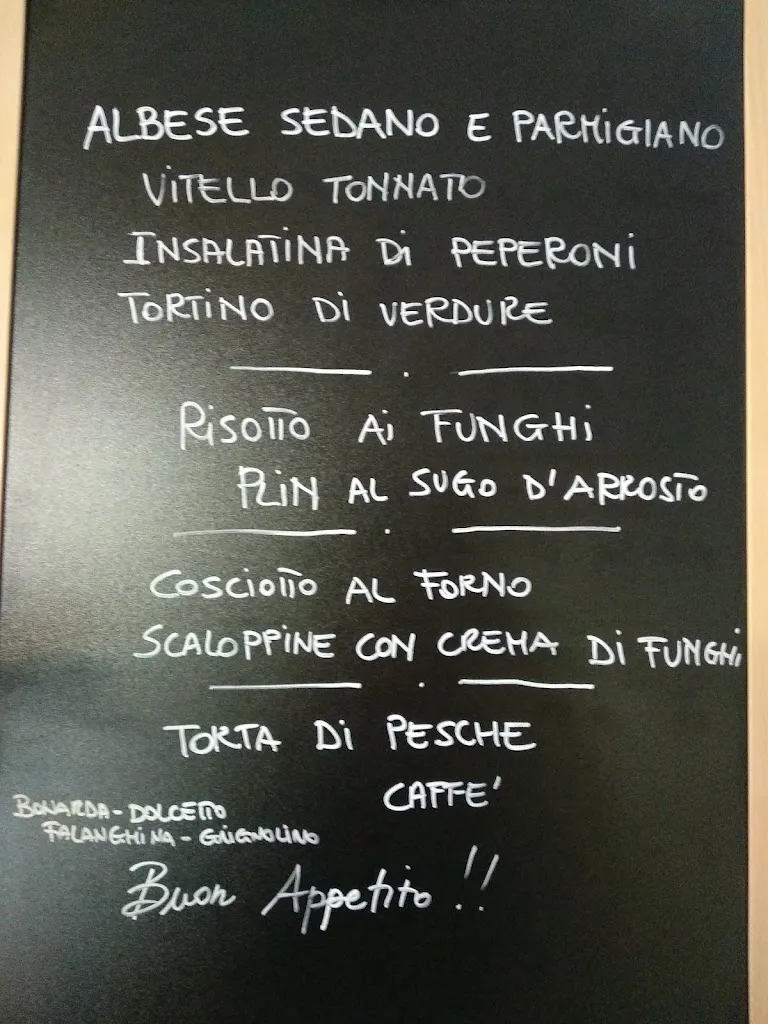 ALBESE SEDANO E PARMIGIANO
VITELLO TONNATO
INSALATINA Di PEPERONI
TORTINO Di VERDURE
RiSOTTO Ai FUNGHi
PLiN AL SUGO D'ARROSTO
COSCIOTTO AL FORNO
SCALOPPiNE CON CREMA Di FUNGHi
TORTA Di PESCHE
CAFFE'
BONARDA - DOLCETTO
FALANGHINA - GRiGNOLINO
Buon Appetito !!